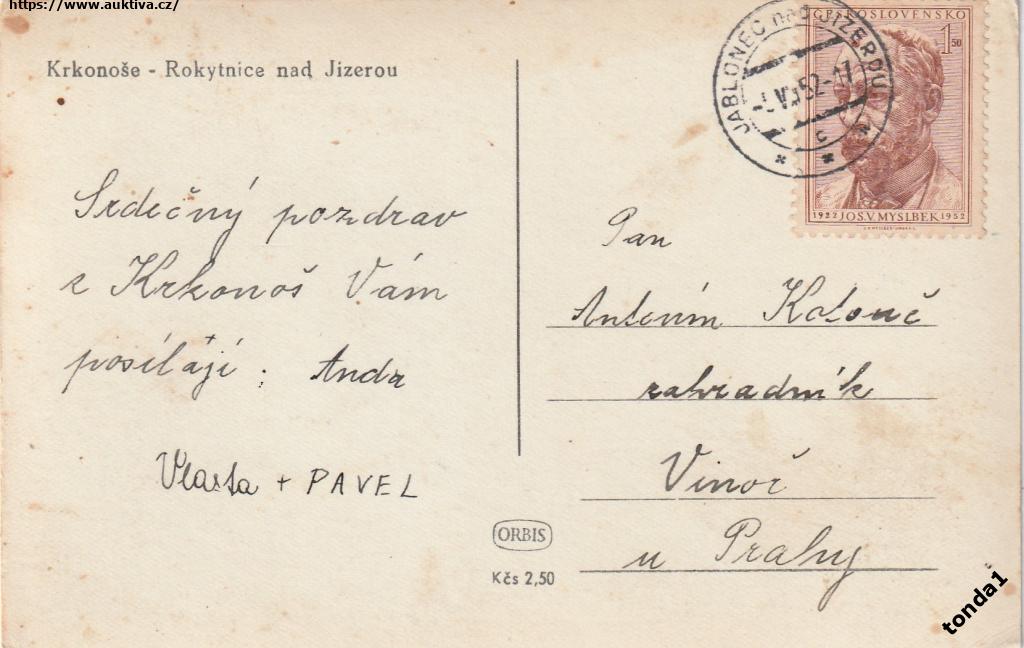 https://www.auktiva.cz/
Krkonoše - Rokytnice nad Jizerou
Srdečný pozdrav
z Krkonoš Vám
posílají: Anda
Vlasta + PAVEL
JABLONEC nad JIZEROU
52-17
c
ČESKOSLOVENSKO
1 50
1922 JOS.V.MYSLBEK 1952
Pan
Antonín Kotouč
zahradník
Vinoř
u Prahy
ORBIS
Kčs 2,50
tonda1